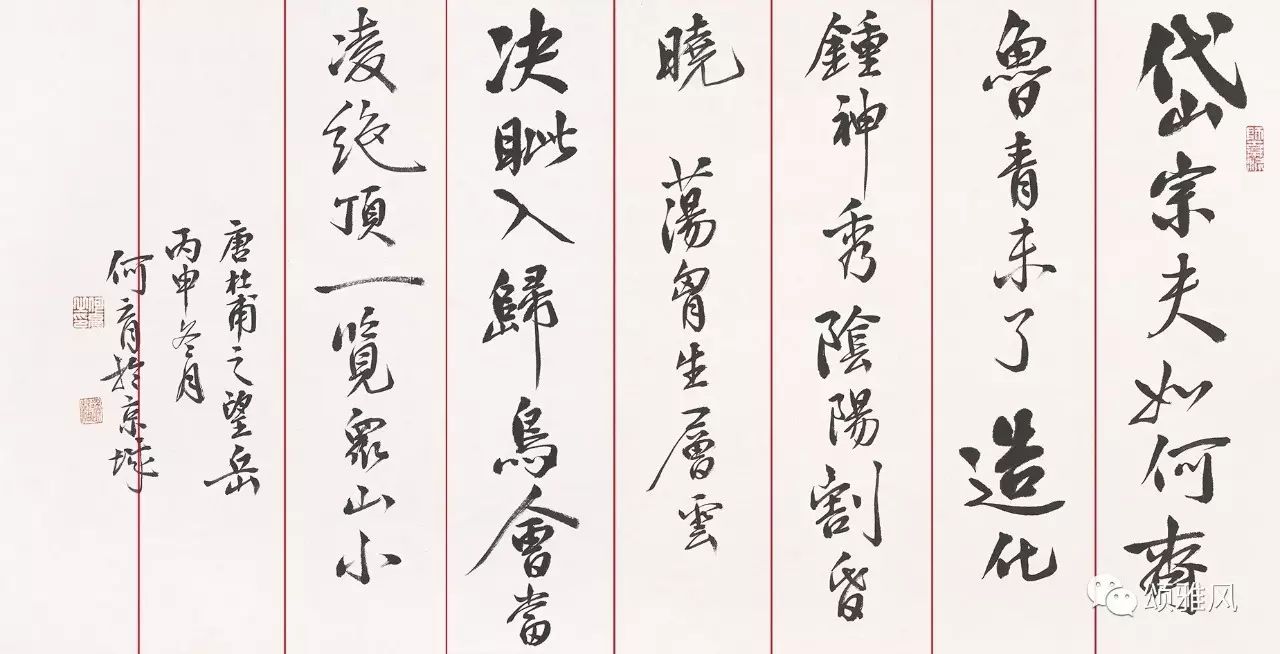 岱宗夫如何齊
魯青未了造化
鍾神秀陰陽割昏
曉 蕩胷生層雲
决眦入歸鳥會當
凌絶頂一覽衆山小
唐杜甫之望岳
丙申冬月
何育於京城
颂雅风